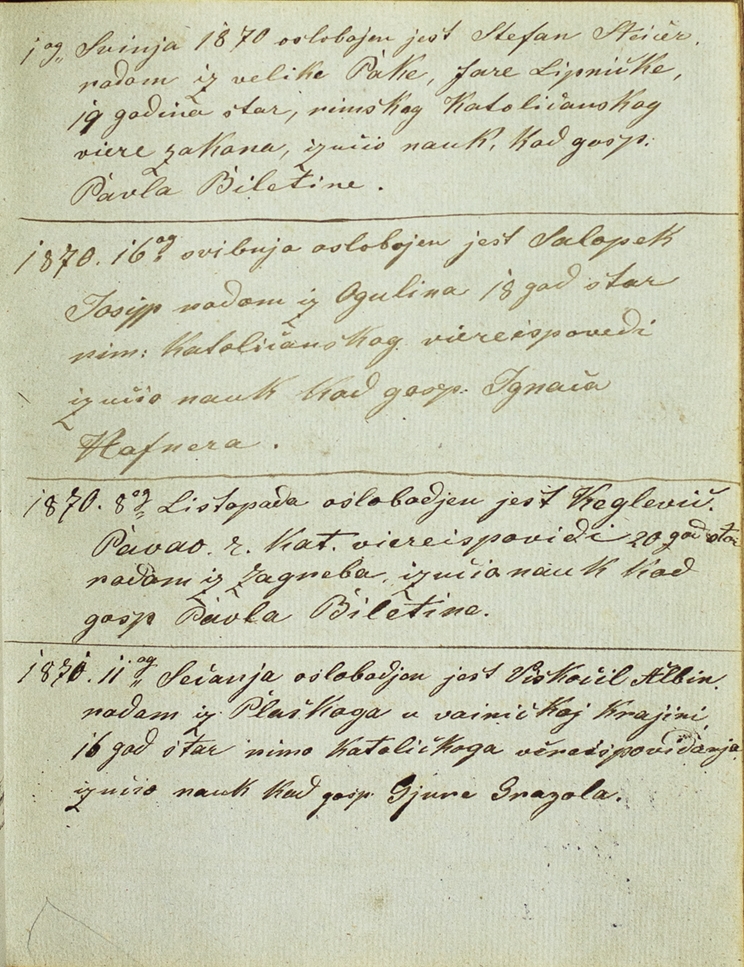 1og Svinja 1870 oslobojen jest Stefan Steier,
rodom iz velike Pake, fare Lipničke,
19 godina star, rimskog Katoličanskog
viere zakona, izučio nauk, kod gosp:
Pavla Biletine.
1870. 16og svibnja oslobojen jest Salopek
Josip rodom iz Ogulina 18 god star
rim: Katoličanskog viereispovedi
izučio nauk kod gosp. Ignaca
Hafnera.
1870. 8og Listopada oslobodjen jest Keglevič.
Pavao. r. Kat. viereispovidi 20 god star
rodom iz Zagreba, izučio nauk kod
gosp Pavla Biletine.
11og Sečanja oslobodjen jest Viskočil Albin.
rodom iz Plaškoga u vainičkoj Krajini,
16 god star rimo Katoličkoga vereispovidanja
izučio nauk kod gosp. Gjure Grazola.